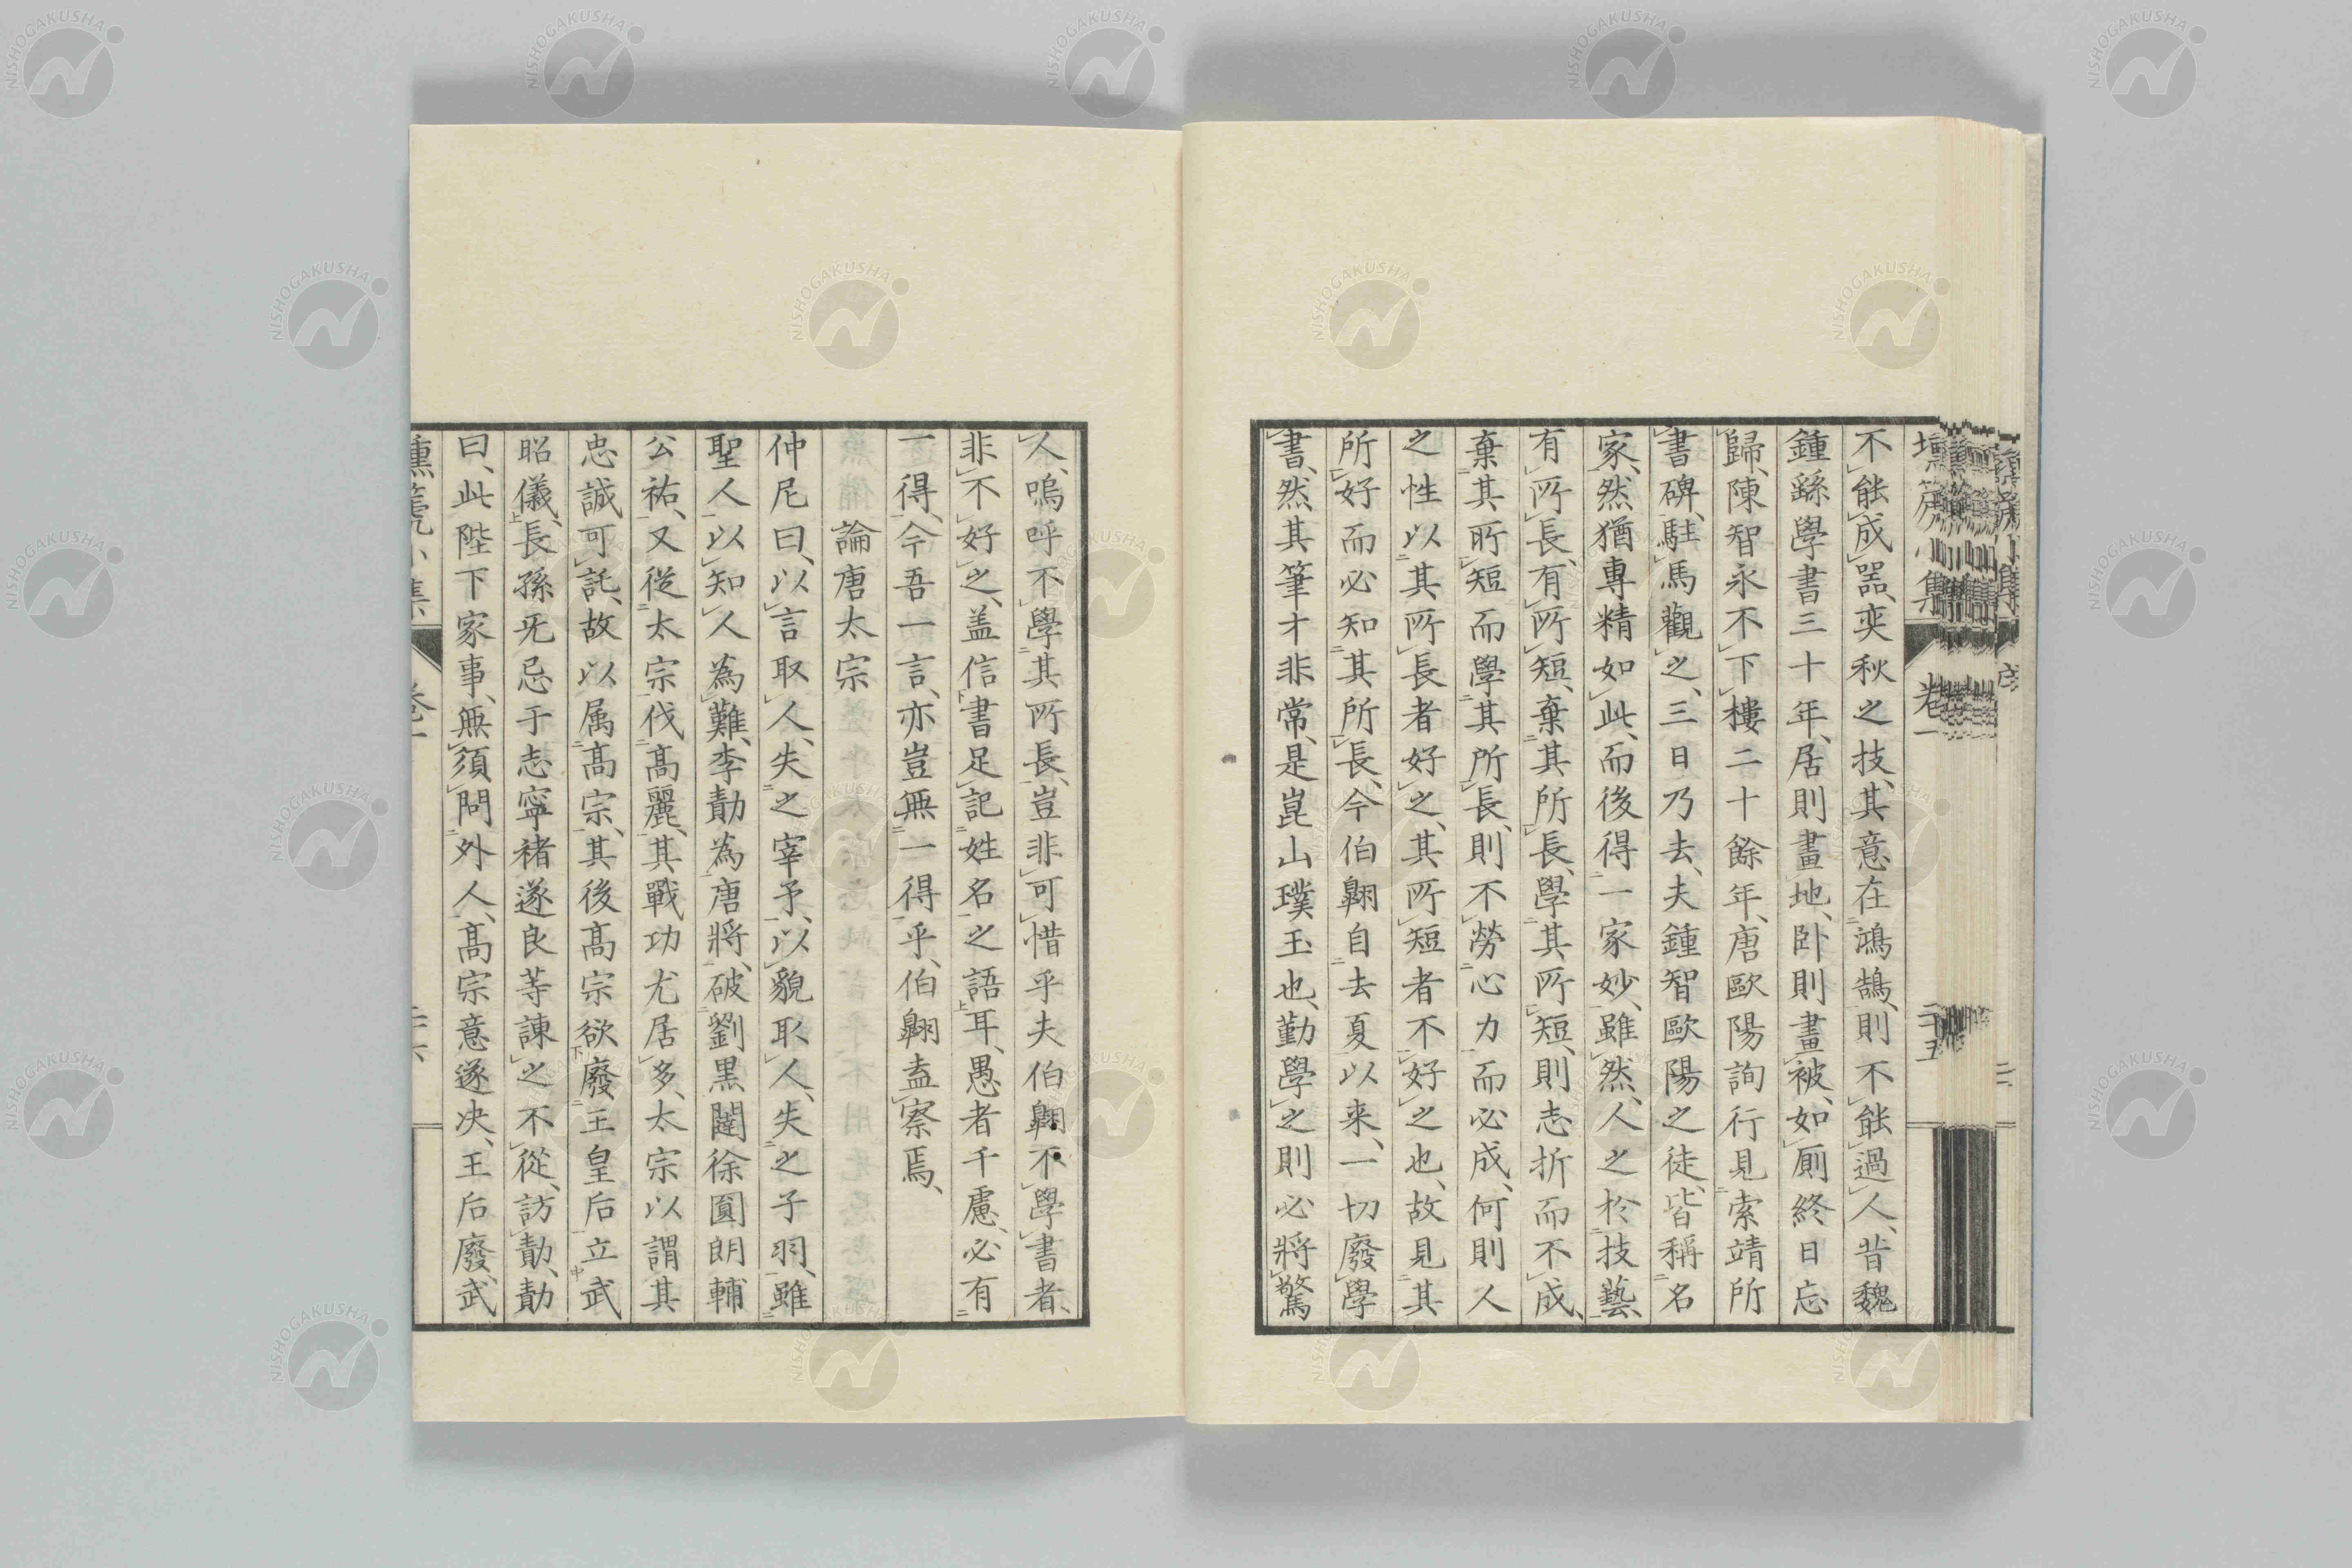 不能成器、奕秋之技、其意在鴻鵠、則不能過人、昔魏
鍾繇學書三十年、居則畫地、卧則畫被、如厠終日忘
歸、陳智永不下樓二十餘年、唐歐陽詢行見索靖所
書碑、駐馬觀之、三日乃去、夫鍾智歐陽之徒、皆稱名
家、然猶專精如此、而後得一家妙、雖然、人之於技藝、
有所長、有所短、棄其所長、學其所短、則志折而不成、
棄其所短而學其所長、則不勞心力而必成、何則人
之性以其所長者好之、其所短者不好之也、故見其
所好而必知其所長、今伯翺自去夏以来、一切廢學
書、然其筆才非常、是崑山璞玉也、勤學之則必將驚
人、嗚呼不學其所長、豈非可惜乎夫伯翺不學書者、
非不好之、盖信書足記姓名之語耳、愚者千慮、必有
一得、今吾一言、亦豈無一得乎、伯翺盍察焉、
論唐太宗
仲尼曰、以言取人、失之宰予、以貌取人、失之子羽、雖
聖人以知人為難、李勣為唐將、破劉黒闥徐圓朗輔
公祐、又從太宗伐髙麗、其戰功尤居多、太宗以謂其
忠誠可託、故以属髙宗、其後髙宗欲廢王皇后立武
昭儀、長孫旡忌于志寧褚遂良等諌之不從、訪勣、勣
曰、此陛下家事、無須問外人、髙宗意遂决、王后廢、武
壎篪小集
卷一
二十五
NISHOGAKUSHA